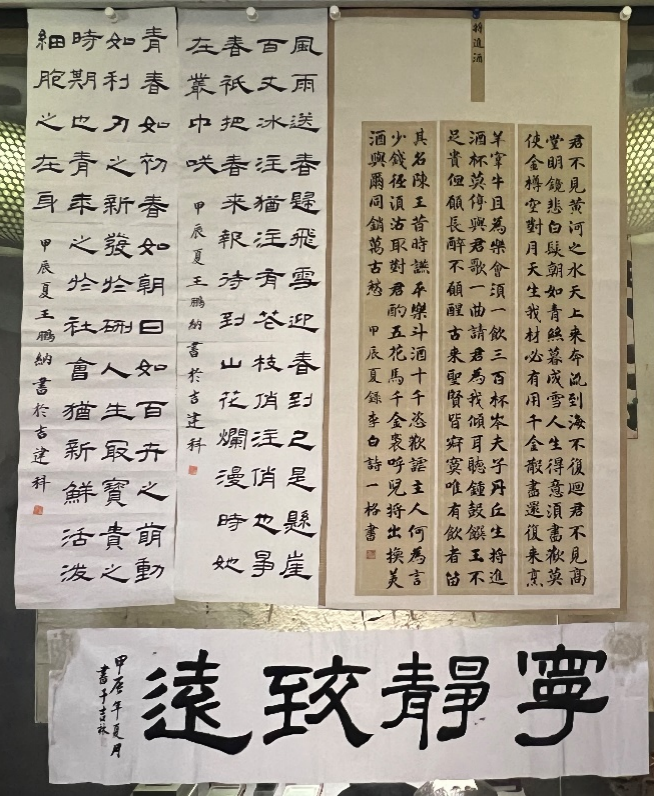 將進酒
君不見黃河之水天上來奔流到海不復迴君不見高
堂明鏡悲白髮朝如青絲暮成雪人生得意須盡歡莫
使金樽空對月天生我材必有用千金散盡還復來烹
羊宰牛且為樂會須一飲三百杯岑夫子丹丘生將進
酒杯莫停與君歌一曲請君為我傾耳聽鐘鼓饌玉不
足貴但願長醉不願醒古來聖賢皆寂寞唯有飲者留
其名陳王昔時讌平樂斗酒十千恣歡謔主人何為言
少錢徑須沽取對君酌五花馬千金裘呼兒將出換美
酒與爾同銷萬古愁 甲辰夏錄李白詩一格書
風雨送春歸飛雪迎春到已是懸崖
百丈冰注猶注有花枝俏注俏也爭
春祇把春來報待到山花爛漫時她
在叢中咲 甲辰夏王鵬納書於吉建科
青春如初春如朝日如百卉之萌動
如利刃之新發於硎人生最寶貴之
時期也青年之於社會猶新鮮活潑
細胞之在身 甲辰夏王鵬納書於吉建科
寧靜致遠
甲辰年夏月
書于吉林